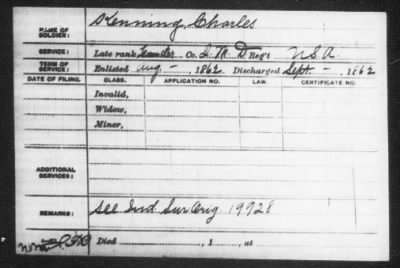 NAME OF SOLDIER: Kenning, Charles
SERVICE: Late rank, Teamster Co. Q. M. D Reg't U.S.A.
TERM OF SERVICE: Enlisted Aug - , 1862, Discharged Sept - , 1862
DATE OF FILING. CLASS. APPLICATION NO. LAW. CERTIFICATE NO.
Invalid,
Widow,
Minor,
ADDITIONAL SERVICES:
REMARKS: See Ind Sur Orig 19928
Died , 1 , at